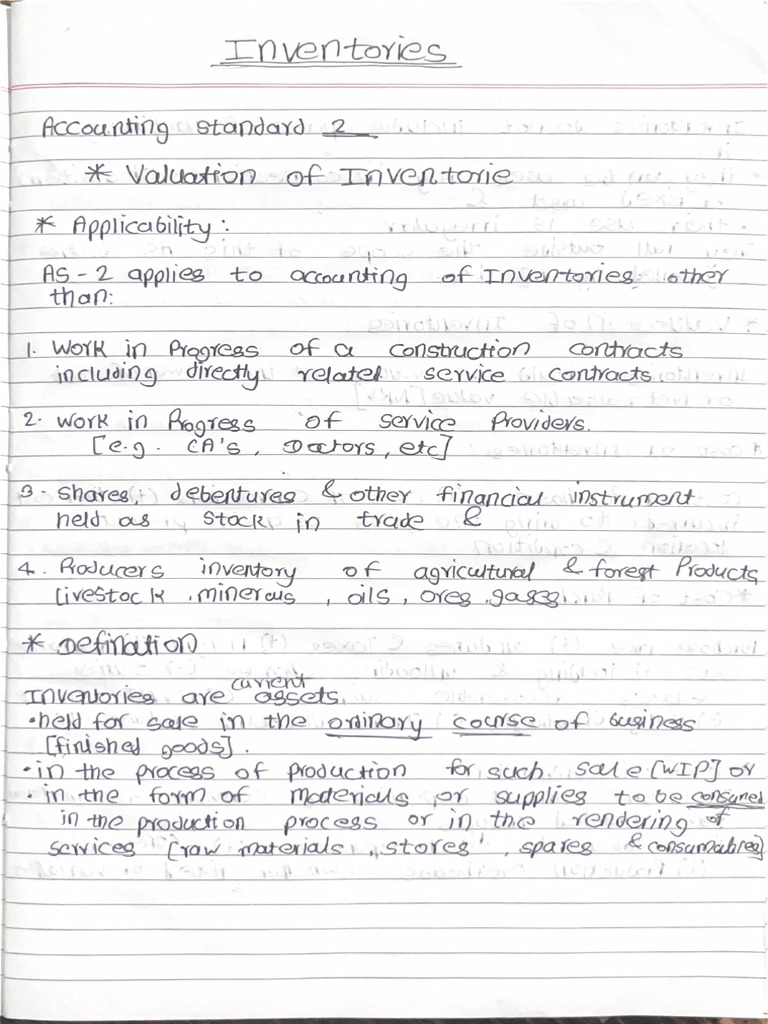 Inventories
Accounting standard 2
* Valuation of Inventorie
* Applicability:
AS-2 applies to accounting of Inventories other
than:
1. Work in Progress of a construction contracts
including directly related service contracts
2. Work in Progress of service Providers.
[e.g. CA's, Doctors, etc]
3. shares, debentures & other financial instrument
held as stock in trade &
4. Producers inventory of agricultural & forest Products,
Livestock, minerals, oils, ores, gases
* Defination
Inventories are current assets
• held for sale in the ordinary course of business
[finished goods].
• in the process of production for such sale [WIP] or
• in the form of materials or supplies to be consumed
in the production process or in the rendering of
services [raw materials, stores, spares & consumables]